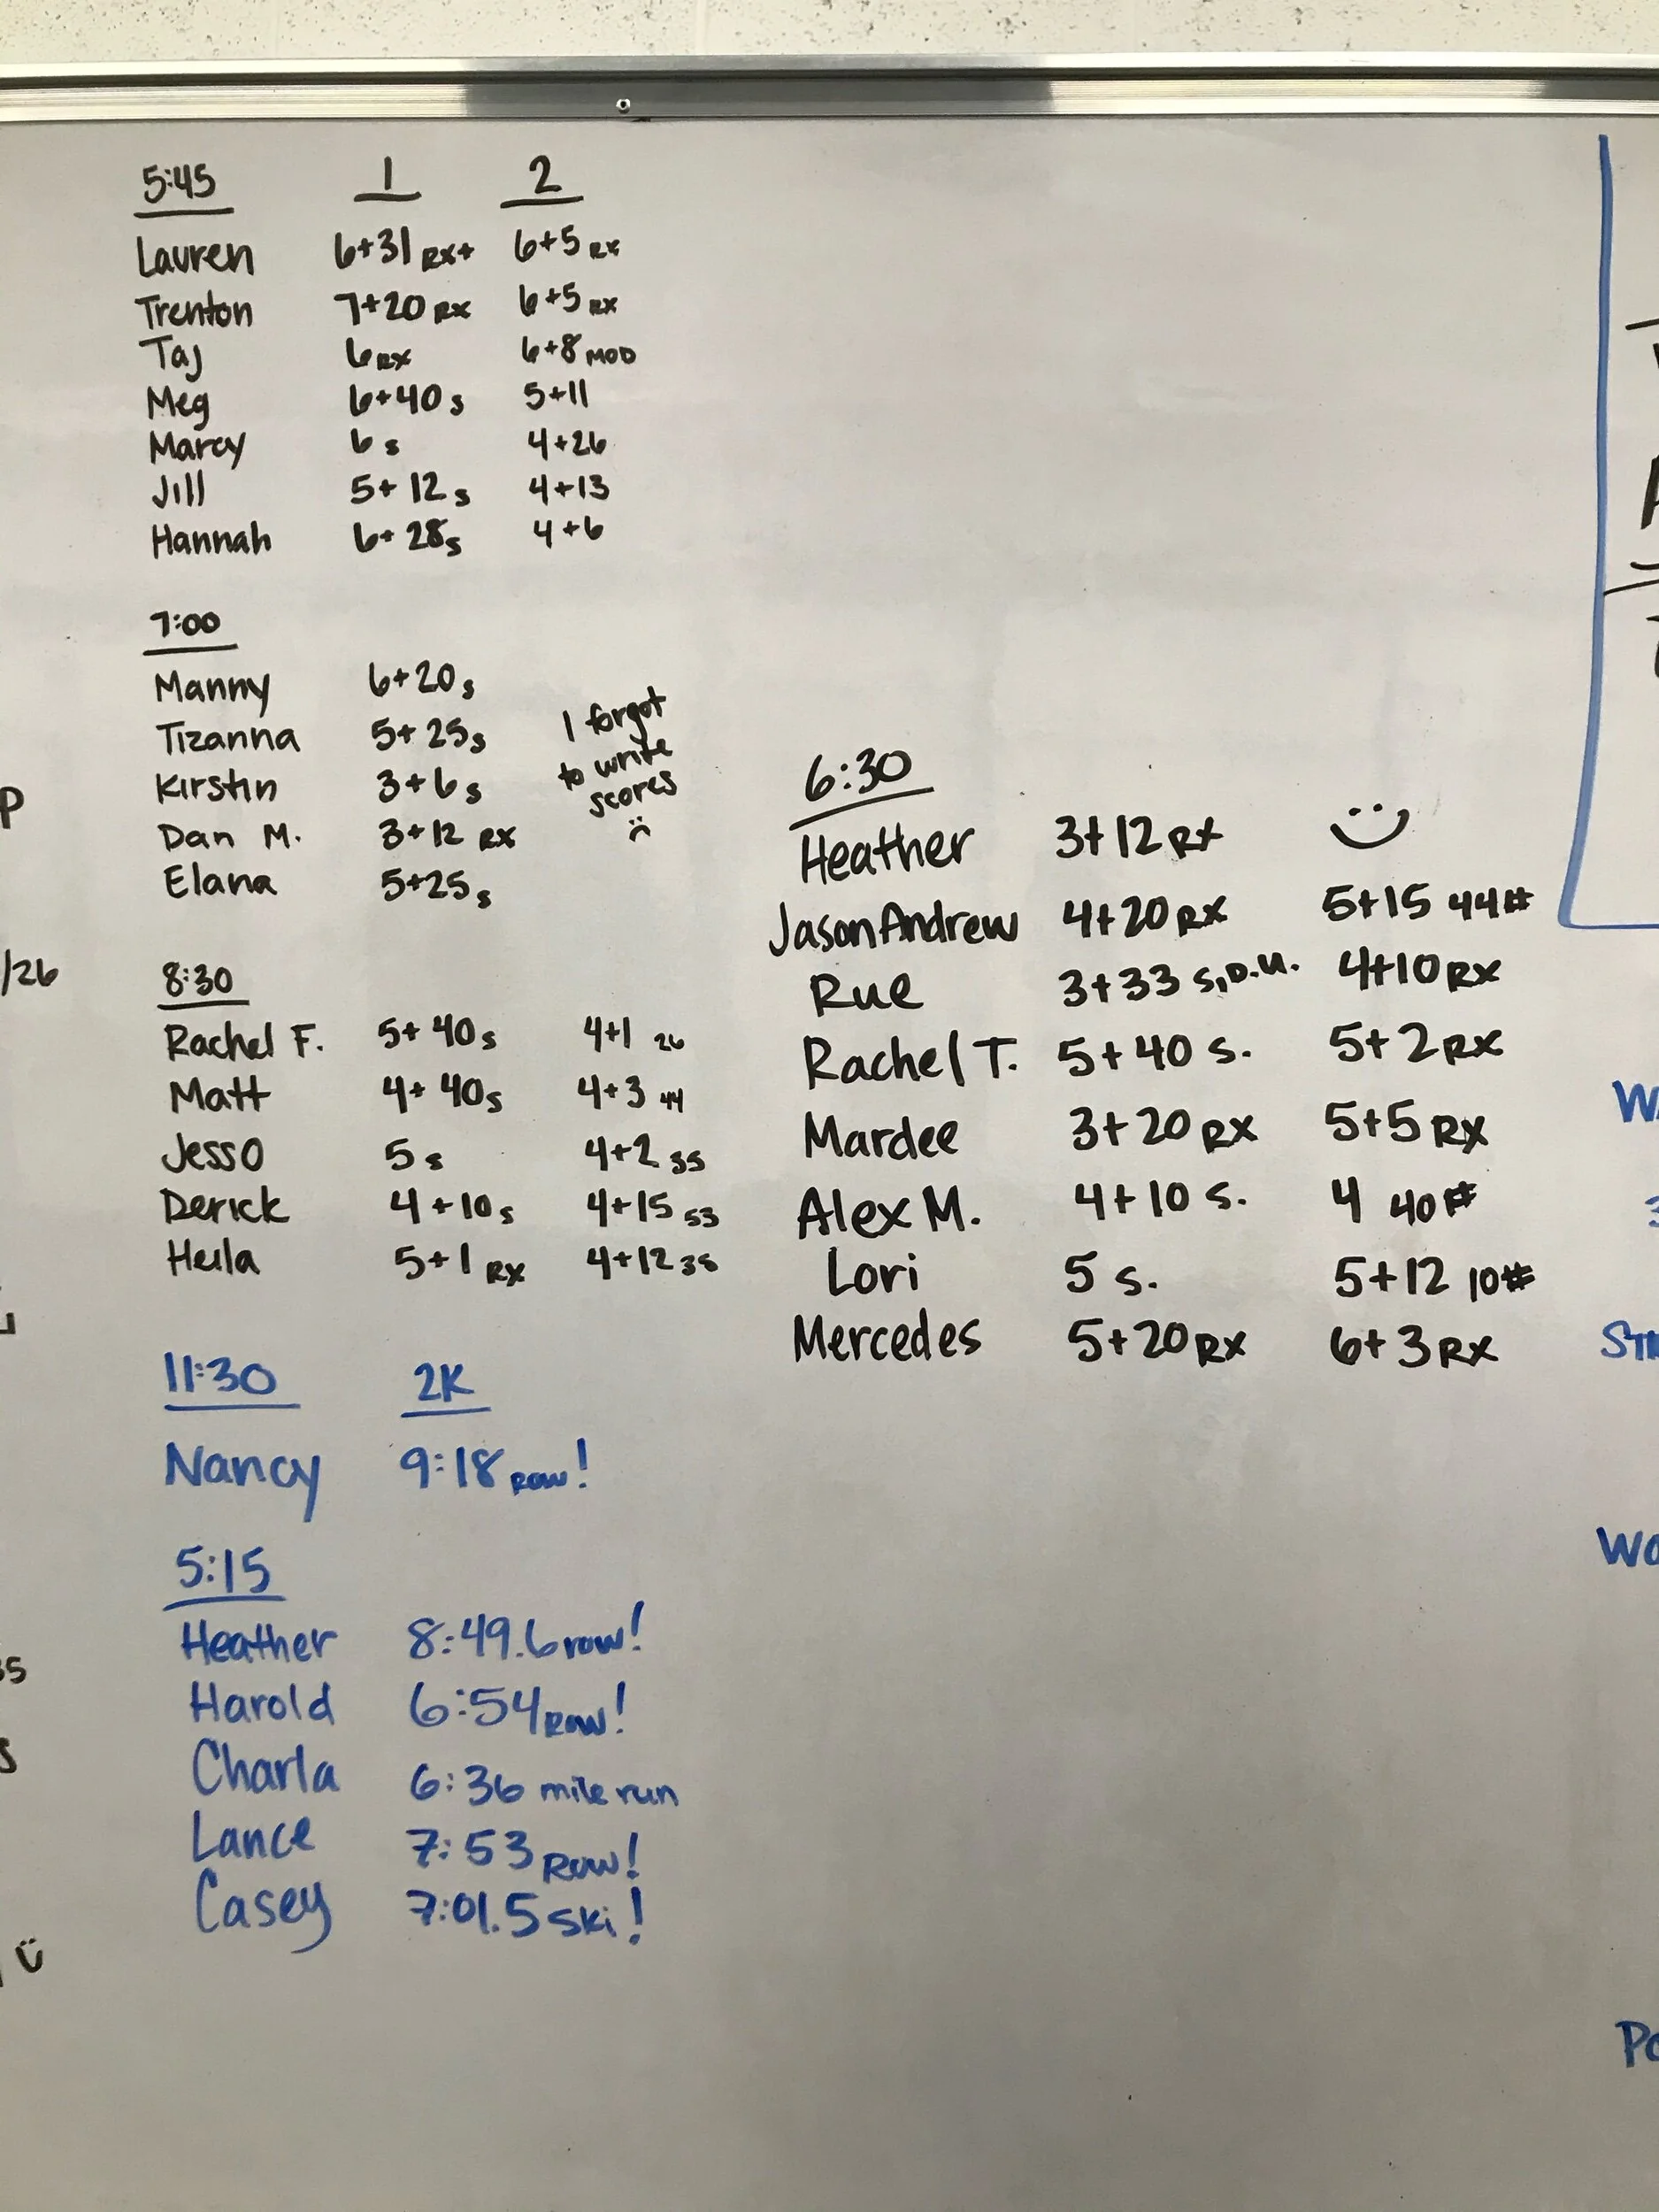 5:45 1 2
Lauren 6+31 RX+ 6+5 RX
Trenton 7+20 RX 6+5 RX
Taj 6 RX 6+8 MOD
Meg 6+40 s 5+11
Marcy 6 s 4+26
Jill 5+12 s 4+13
Hannah 6+28 s 4+6
7:00
Manny 6+20 s
Tizanna 5+25 s
Kirstin 3+6 s
Dan M. 3+12 RX
Elana 5+25 s
I forgot
to write
scores
8:30
Rachel F. 5+40 s 4+1 26
Matt 4+40 s 4+3 44
Jess O 5 s 4+2 35
Derick 4+10 s 4+15 53
Heila 5+1 RX 4+12 35
11:30 2K
Nancy 9:18 row!
5:15
Heather 8:49.6 row!
Harold 6:54 row!
Charla 6:36 mile run
Lance 7:53 Row!
Casey 7:01.5 Ski!
6:30
Heather 3+12 RX
Jason Andrew 4+20 RX 5+15 44#
Rue 3+33 S, D.U. 4+10 RX
Rachel T. 5+40 S. 5+2 RX
Mardee 3+20 RX 5+5 RX
Alex M. 4+10 S. 4 40#
Lori 5 S. 5+12 10#
Mercedes 5+20 RX 6+3 RX
/26